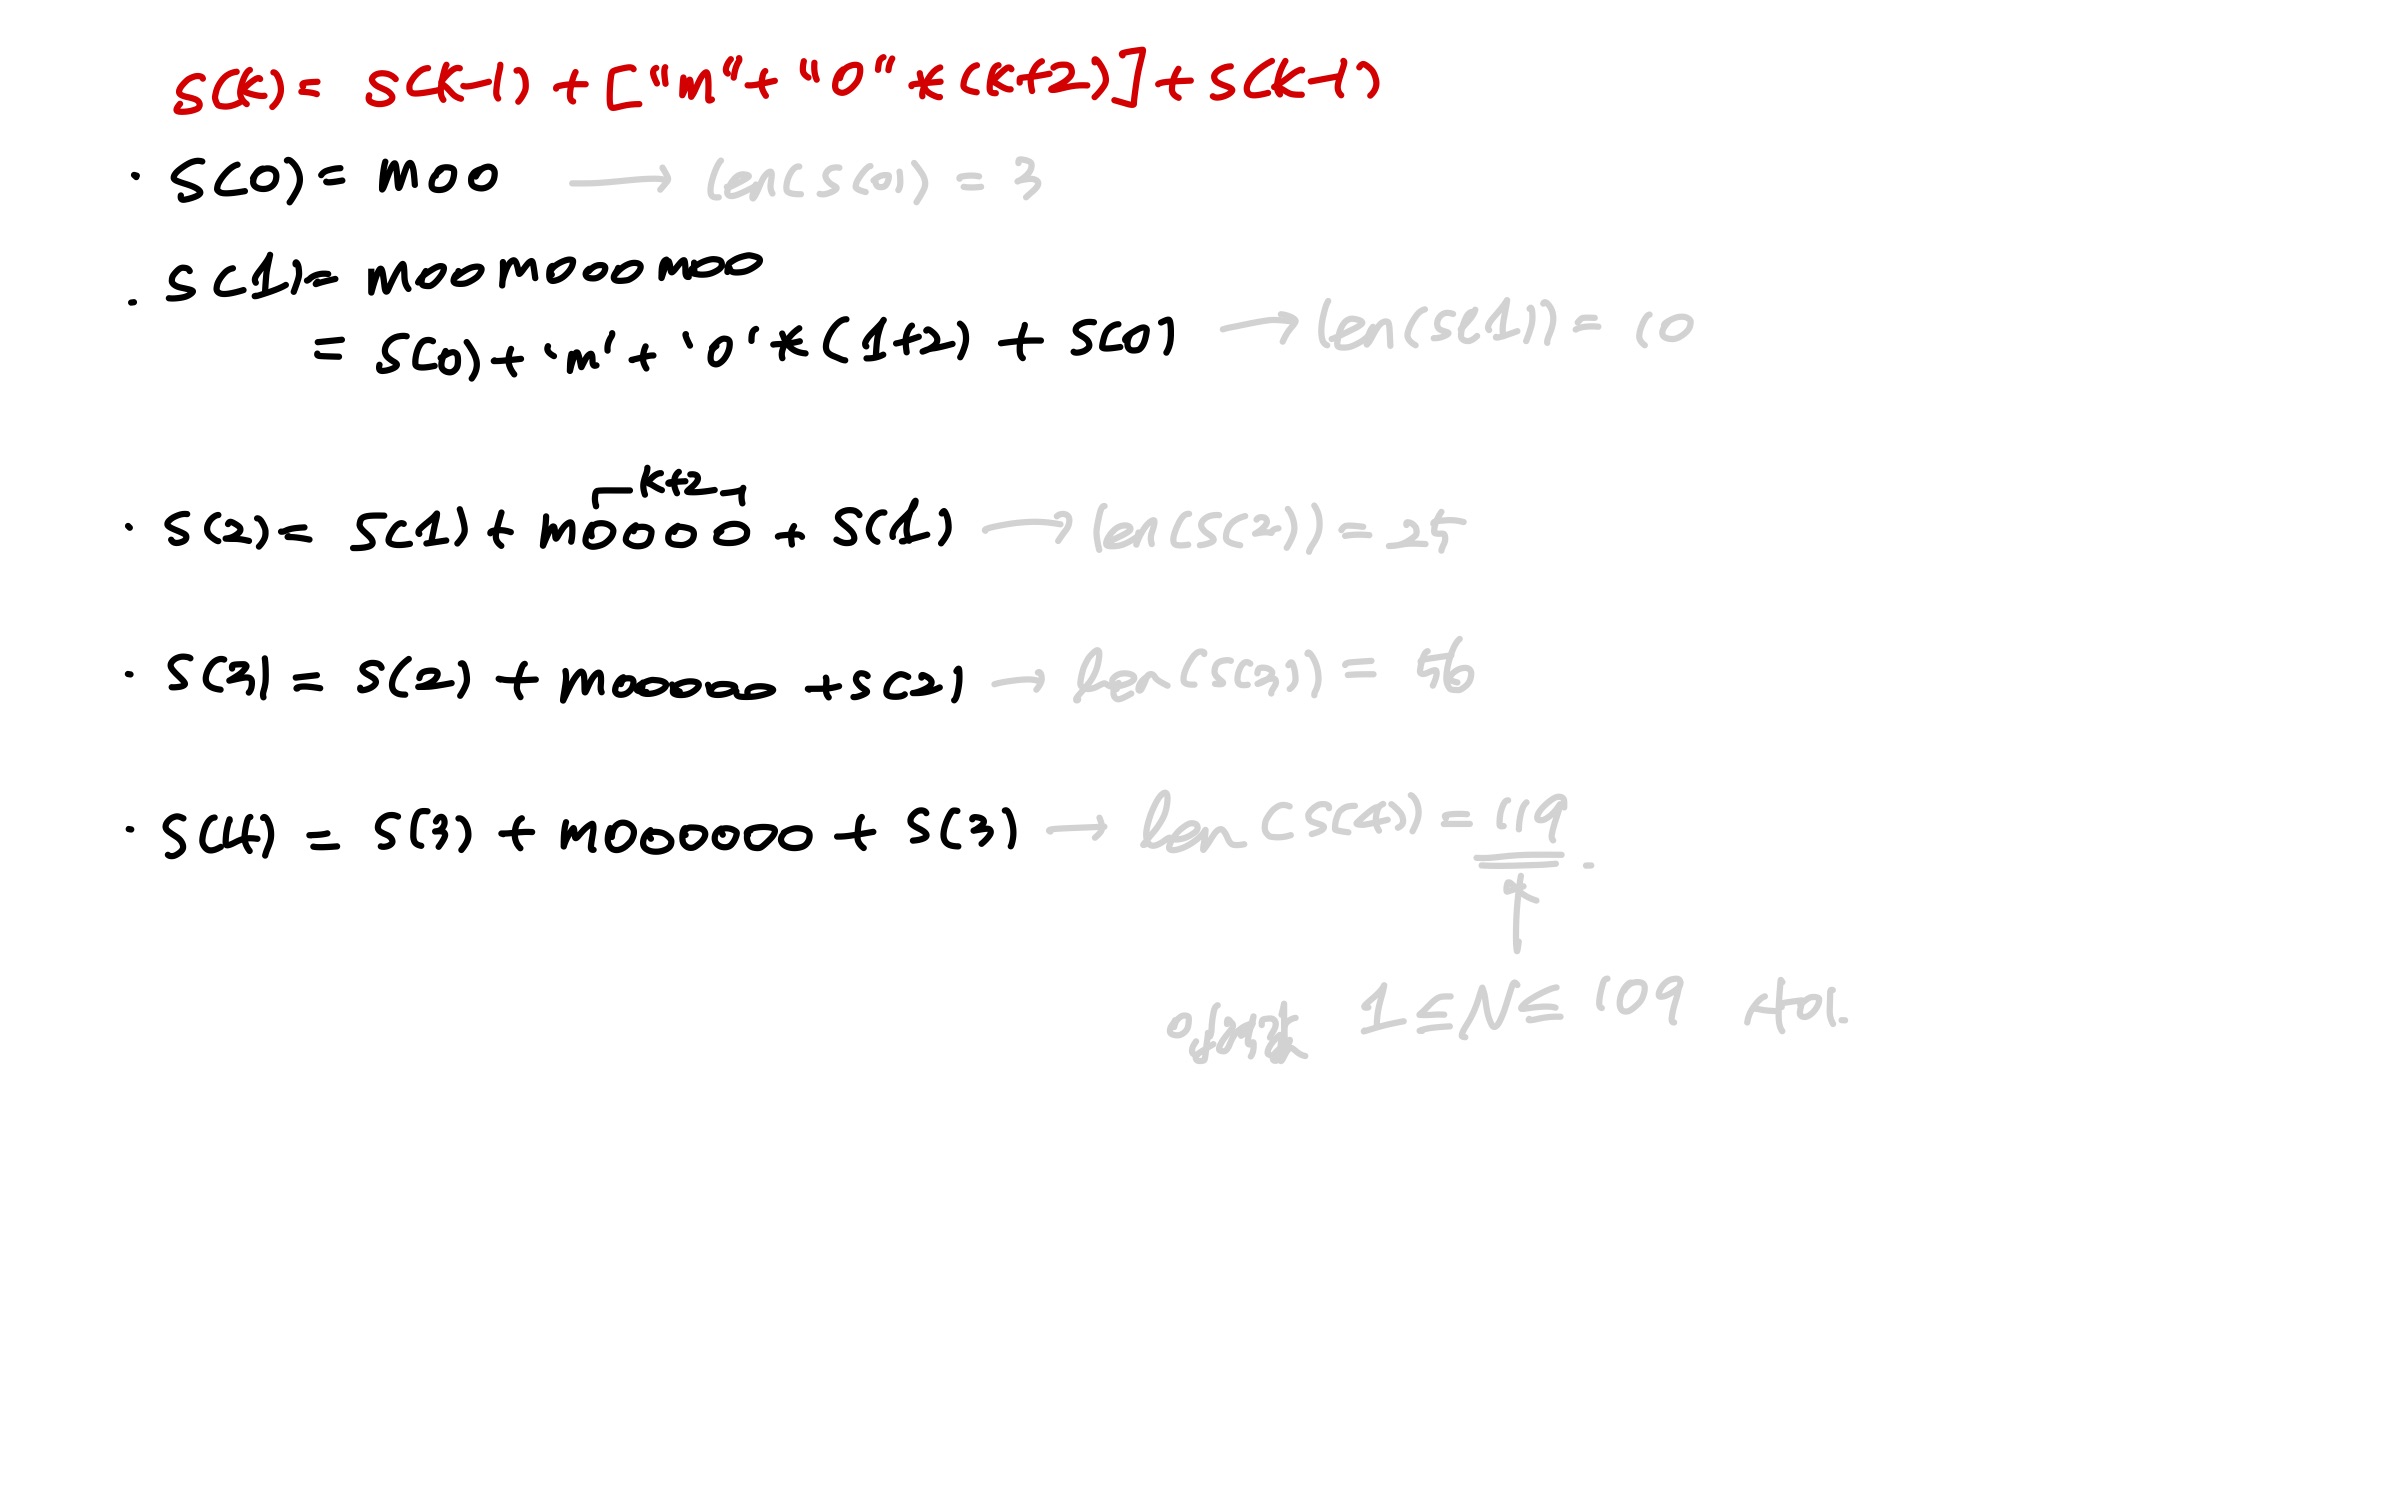 S(k) = S(k-1) + ["m" + "o" * (k+2)] + S(k-1)
· S(0) = moo → len(S(0)) = 3
· S(1) = moomooomoo
= S(0) + 'm' + 'o' * (1+2) + S(0) → len(S(1)) = 10
k+2
· S(2) = S(1) + moooo + S(1) → len(S(2)) = 25
· S(3) = S(2) + mooooo + S(2) → len(S(3)) = 
· S(4) = S(3) + moooooo + S(3) → len(S(4)) = 119.
1 ≤ N ≤ 109